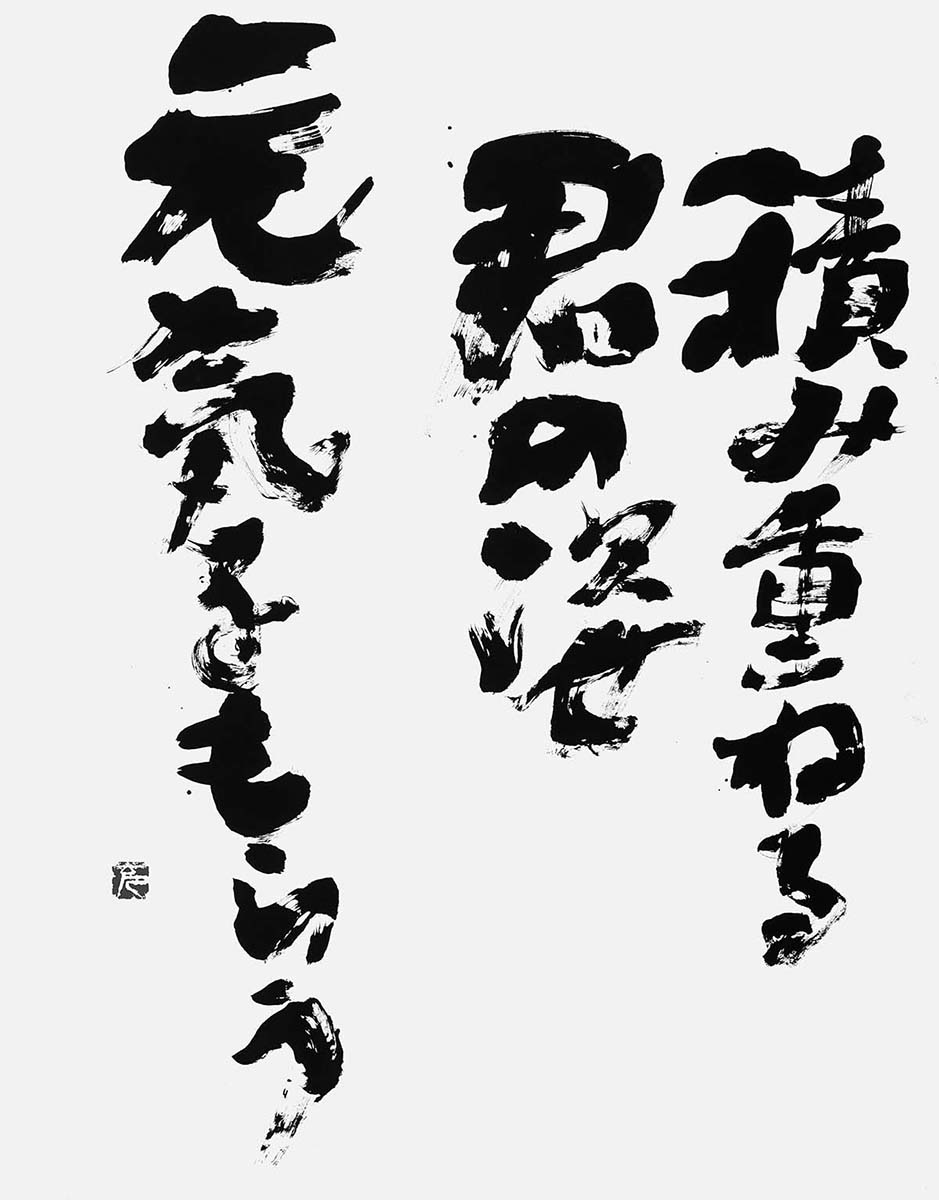 積み重ねる
君の姿
元気をもらう